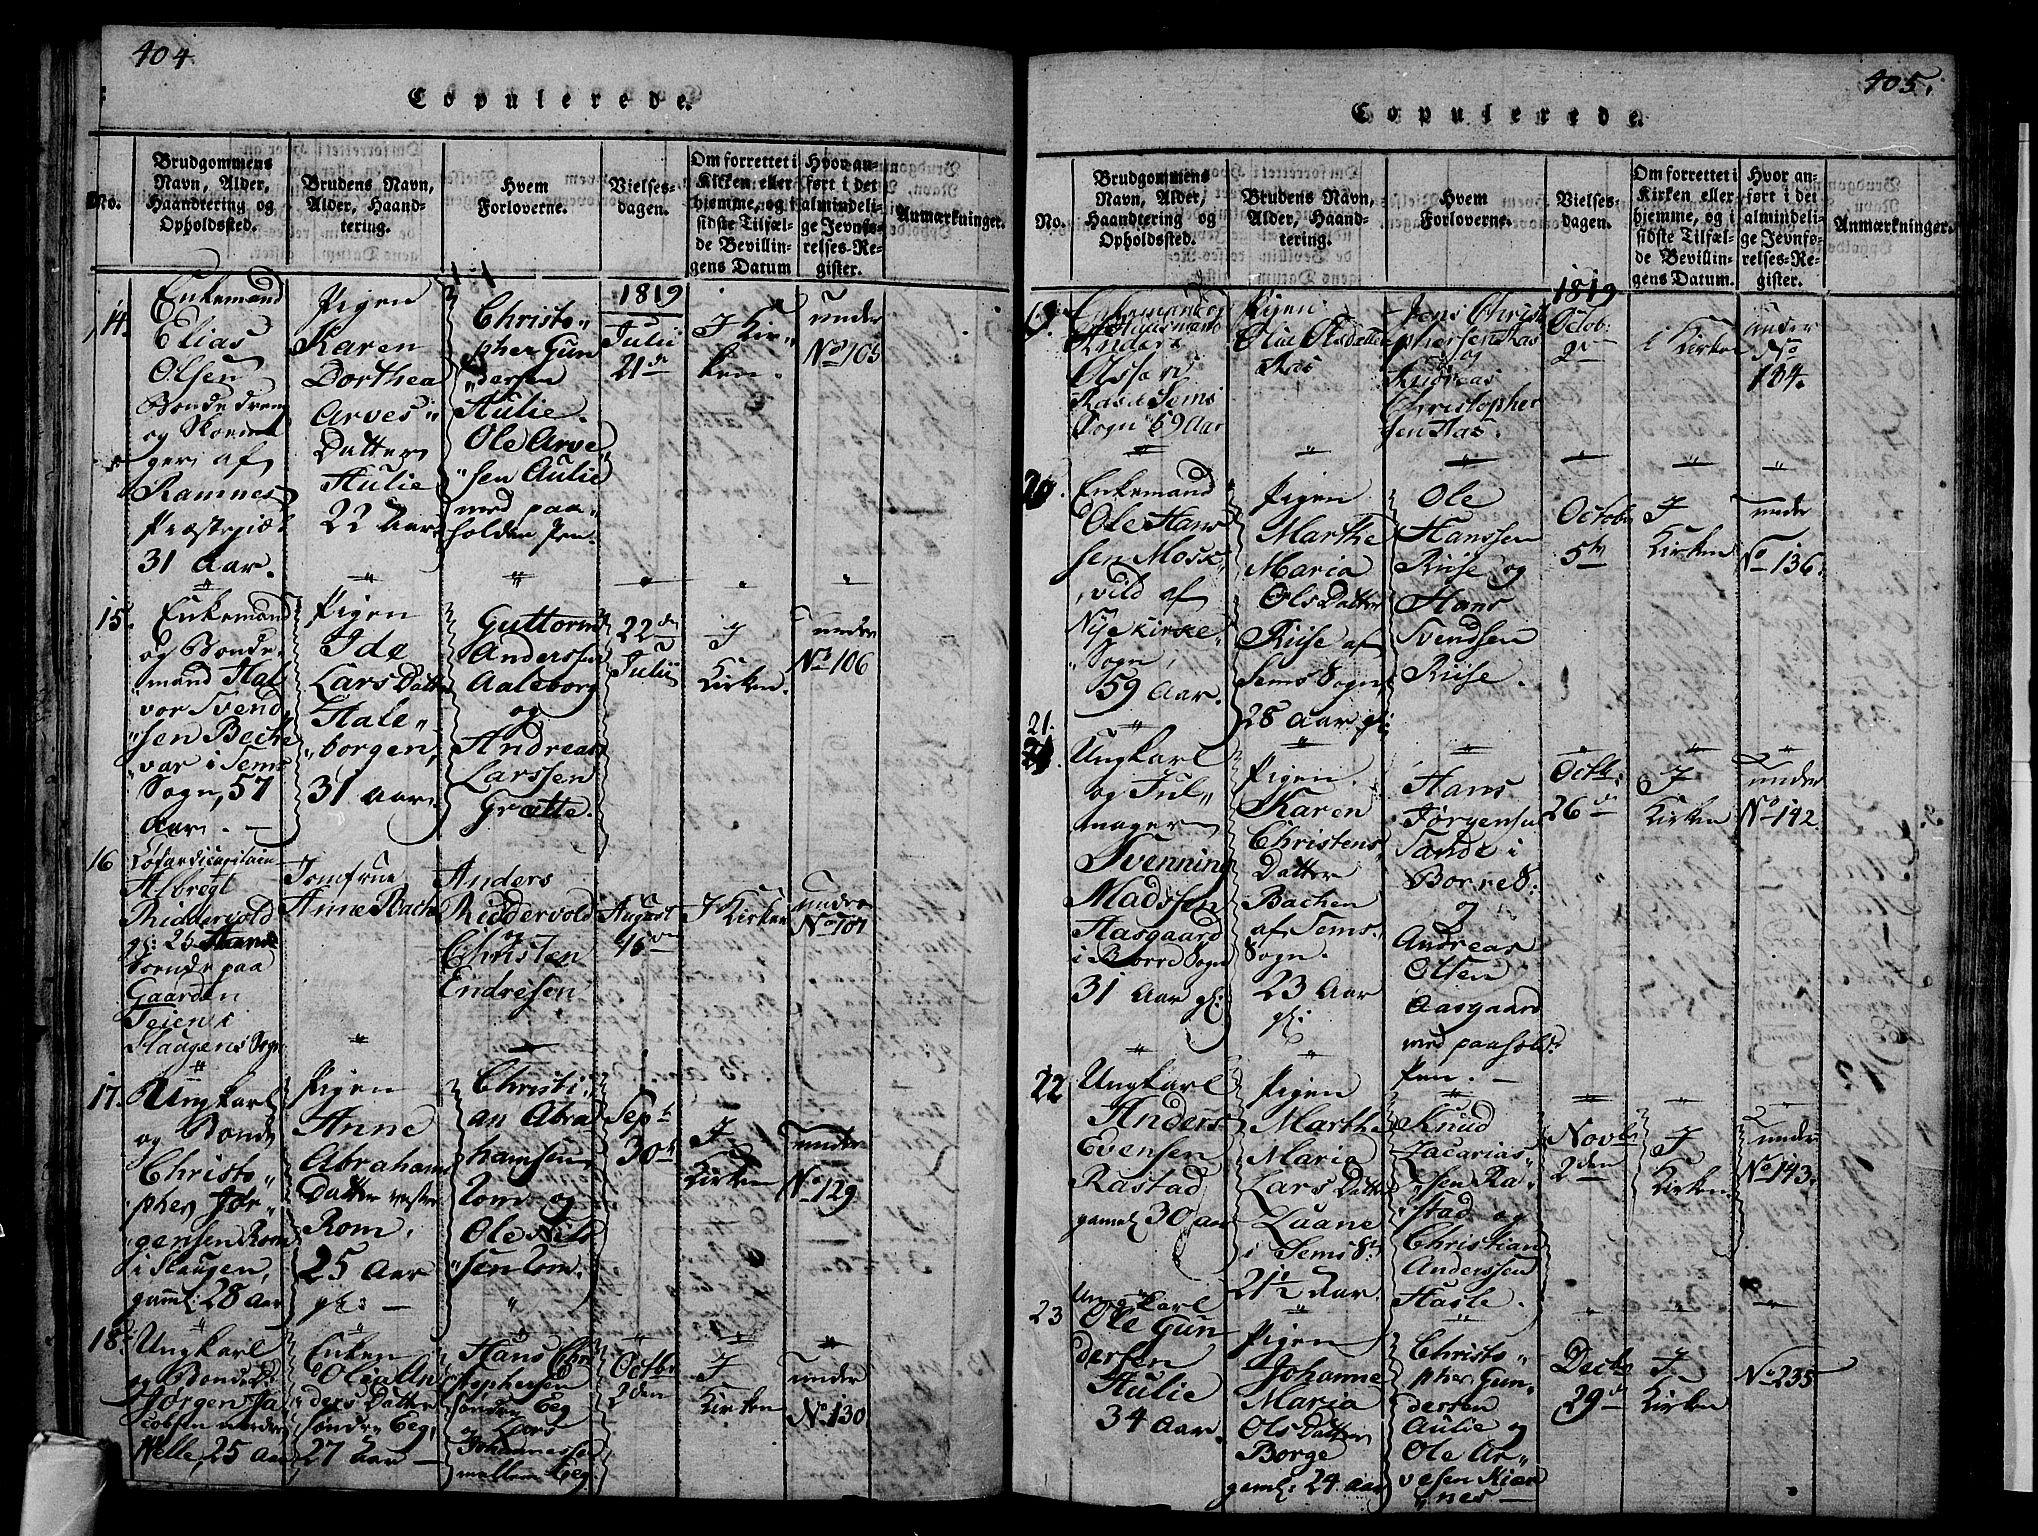 404.
Copulerede.
No.
Brudgommens
Navn, Alder,
Haandtering og
Opholdssted.
Brudens Navn,
Alder, Haand-
tering.
Hvem
Forloverne.
Vielses-
dagen.
Om forrettet i
Kirken eller
hjemme, og i
sidste Tilfæl-
de Bevillin-
gens Datum
Hvor an-
ført i det
almindeli-
ge Jevnfø-
relses-Re-
gister.
Anmærkninger.
14.
Enkemand
Elias
Olsen
Bonde dreng
og
ger af
Ramnes
Præstegiæl
31 Aar.
Pigen
Karen
Dorthea
Arves"
Datter
Aulie
22 Aar
Christo"
pher Gun
"dersen
Aulie.
Ole Arve
"sen Aulie
med paa"
holden Pen.
1819
Julii
21de
I Kir"
ken.
under
No 105
15.
Enkemand
og Bonde
mand Hal
vor Svend
"sen Becke
var i Sems
Sogn, 57
Aar. —
Pigen
Ide
Lars Datter
Hale"
"borgen,
31 Aar.
Guttorm
Anderssen
Aaleborg
og
Andreas
Larssen
Grætte.
22den
Julii
I
Kirken.
under
No 106
16
Albregt
Riddervold
gl: 26
Boende paa
Gaarden
Teien i
Slaugens Sogn
Jomfrue
Anne Bache
Anders
Riddervold
og
Christen
Endresen
August
I Kirken
under
No 107
17.
Ungkarl
og Bonde
Christo"
pher Jør"
gensen Rom
i Slaugen,
gaml: 28 Aar
Pigen
Anne
Abrahams
Datter
Rom,
25 Aar
gl: —
Christi"
an Abra
hamsen
Rom og
Ole Nils
"sen Rom.
Septb
30te
I
Kirken
under
No 129
18.
Ungkarl
og Bonde
Jørgen Ja
cobsen nordre
Nelle, 25 Aar
Enken
Olea An
ders Datter
søndre Eeg,
27 Aar —
Hans Chri
stophersen
søndre Eeg
og Lars
Johannessen
mellem Eeg.
Octbr
2den
I
Kirken
under
No 130
405.
Copulerede.
No.
Brudgommens
Navn, Alder,
Haandtering og
Opholdssted.
Brudens Navn,
Alder, Haand-
tering.
Hvem
Forloverne.
Vielses-
dagen.
Om forrettet i
Kirken eller
hjemme, og i
sidste Tilfæl-
de Bevillin-
gens Datum.
Hvor an-
ført i det
almindeli-
ge Jevnfø-
relses-Re-
gister.
Anmærkninger.
19.
Enkemand og
Huusmand
Anders
Sems
Sogn 59 Aar
Pigen
Olsdatter
Aas
Jens Christo
phersen Aas
og
Andreas
Christopher
sen Aas.
1819
Octob:
2den
i Kirken
under
No
134.
20.
Enkemand
Ole Hans
sen Mosse
vild af
Nÿekirke"
"Sogn,
59 Aar.
Pigen
Marthe
Maria
Ols Datter
Riise af
Sems Sogn,
28 Aar gl:
Ole
Hanssen
Riise og
Hans
Svendsen
Riise.
Octobr
5te
I
Kirken
under
No 136.
21.
21.
Ungkarl
og Jul"
mager
Svenning
Madssen
Aasgaard
i Borre Sogn
31 Aar gl:
Pigen
Karen
Christens
Datter
Bachen
af Sems
Sogn.
23 Aar
gl:
Hans
Jørgensen
Sande i
Borre S:
og
Andreas
Olsen
Aasgaard
med paahold:
Pen. —
Octb:
26de
I
Kirken
under
No 142
22
Ungkarl
Anders
Evensen
Rastad
gamel 30 Aar
Pigen
Marthe
Maria
Lars Datter
Laane
i Sems S:
21½ Aar.
Knud
Zacarias"
"sen Ra"
stad og
Christian
Anderssen
Hasle.
Novb:
2den
I
Kirken
under
No 143.
23
Ungkarl
Ole Gun
dersen
Aulie
34 Aar.
Pigen
Johanne
Maria
Ols Datter
Borge
gaml: 24 Aar
Christo"
pher Gun"
dersen
Aulie og
Ole Ar"
vesen Kiær
"nes —
Decbr
29de
I
Kirken
No 235